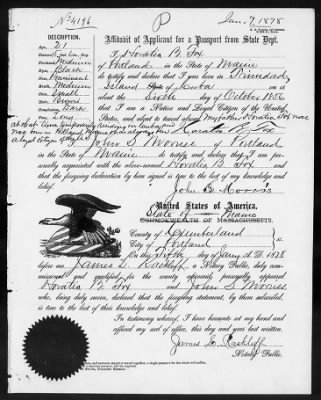 No 4196
P
Jan. 7, 1878
DESCRIPTION.
Age, 21
Affidavit of Applicant for a Passport from State Dept.
I, Horatio B. Fox
of Portland in the State of Maine
do testify and declare that I was born in Trinidad
Island State of Cuba on
the Sixth day of October 1856
that I am a Native and Loyal Citizen of the United
States, and about to travel abroad
Medium
Black
Prominent
Medium
Small
Brown
Dark
Long
Horatio B. Fox
I, John S. Morriss of Portland
in the State of Maine do testify and declare, that I am personally
acquainted with the above-named Horatio B. Fox and that
the foregoing statement is true to the best of my knowledge and belief.
John S. Morriss
United States of America.
State of Maine
COMMONWEALTH OF MASSACHUSETTS.
County of Cumberland
City of Portland ss.
On this Fifth day of Jany A. D. 1878
before me James E. Rackliff, a Notary Public, duly commissioned
and qualified, in the county aforesaid, personally appeared
Horatio B. Fox and John S. Morriss,
who, being duly sworn, declared that the foregoing statement, by them subscribed,
is true to the best of their knowledge and belief.
In testimony whereof, I have hereunto set my hand and
affixed my seal of office, this day and year last written.
James E. Rackliff
Notary Public.